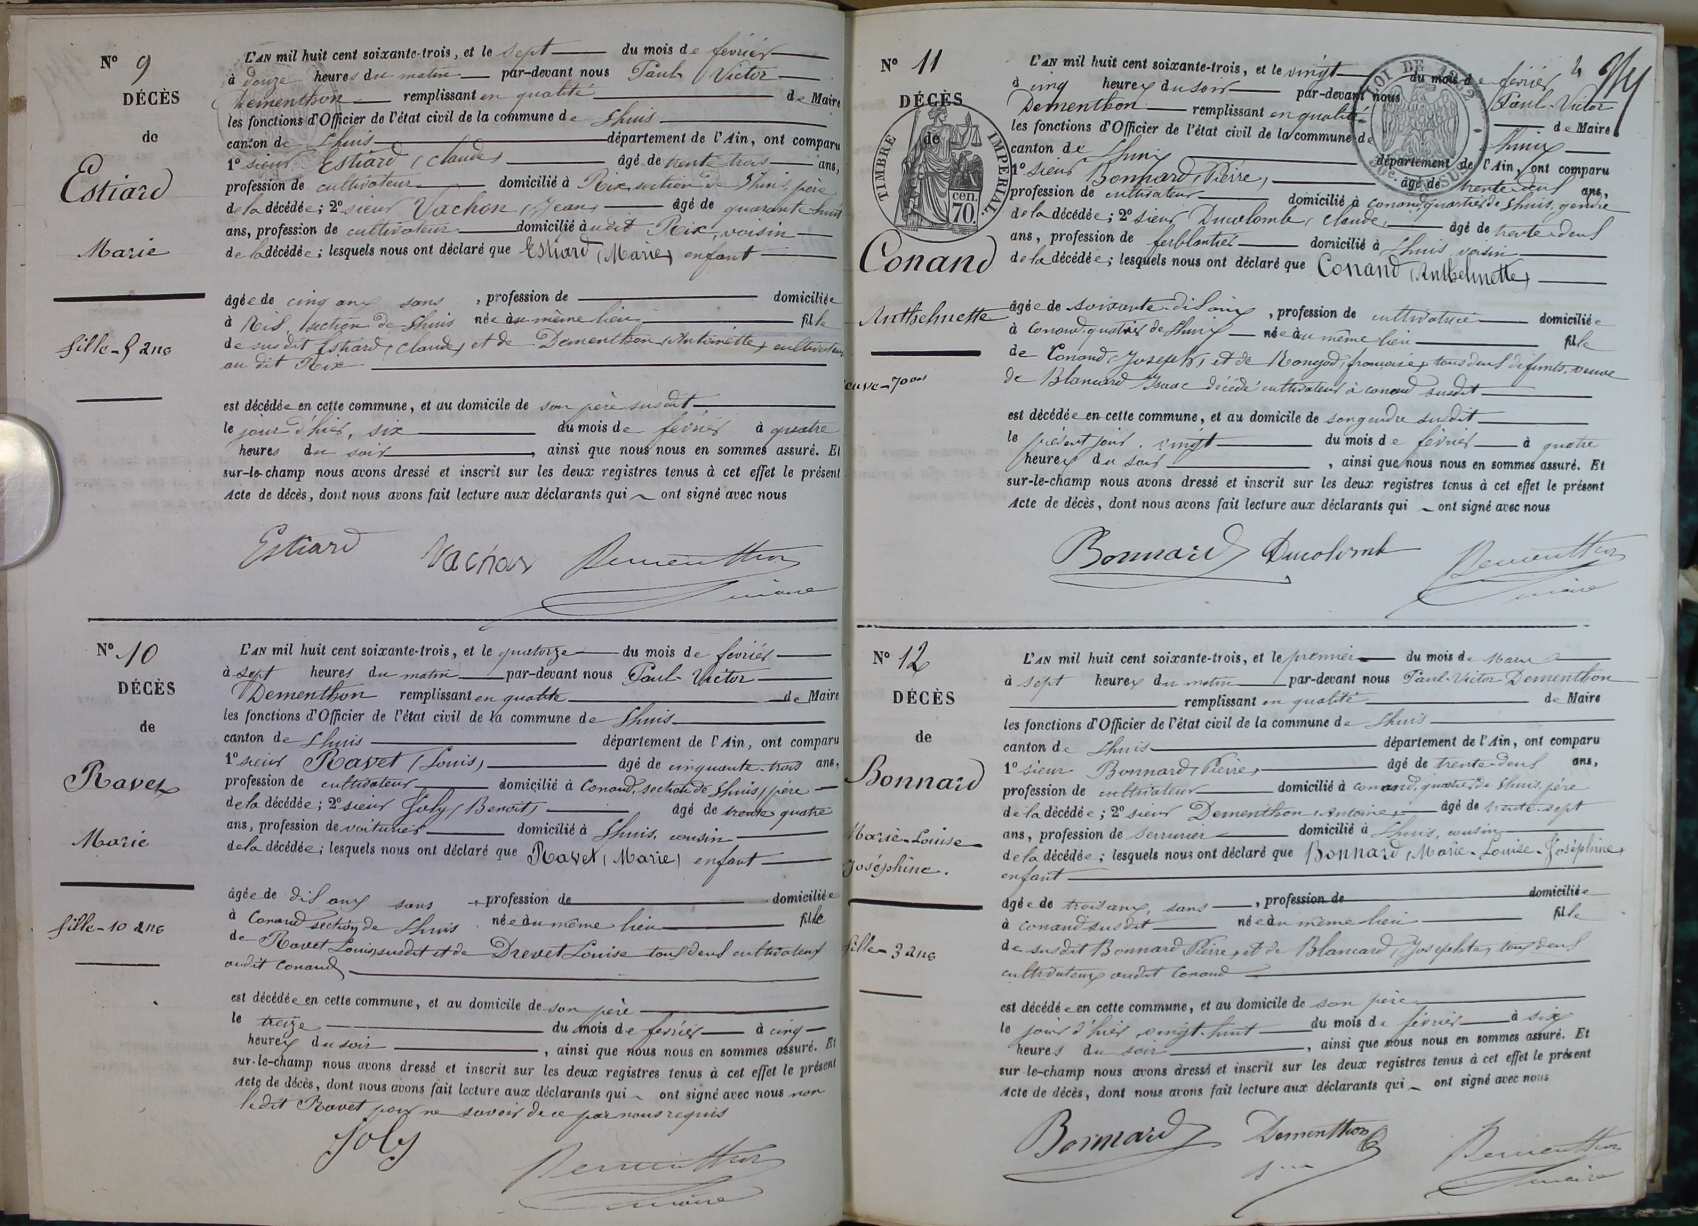 N° 9
DÉCÈS
de
Estiard
Marie
fille - 5 ans
L'AN mil huit cent soixante-trois, et le sept du mois de février
à douze heures du matin par-devant nous Paul Victor
Dementhon remplissant en qualité de Maire
les fonctions d'Officier de l'état civil de la commune de Lhuis
canton de Lhuis département de l'Ain, ont comparu
1° sieur Estiard (Claude) âgé de trente trois ans,
profession de cultivateur domicilié à Rix, section de Lhuis, père
de la décédée; 2° sieur Vachon (Jean) âgé de quarante huit
ans, profession de cultivateur domicilié audit Rix, voisin
de la décédée; lesquels nous ont déclaré que Estiard (Marie) enfant
âgée de cinq ans sans , profession de domiciliée
à Rix, section de Lhuis née au même lieu fille
de susdit Estiard (Claude) et de Dementhon (Antoinette) cultivateurs
au dit Rix
est décédée en cette commune, et au domicile de son père susdit
le jour d'hier, six du mois de février à quatre
heures du soir , ainsi que nous nous en sommes assuré. Et
sur-le-champ nous avons dressé et inscrit sur les deux registres tenus à cet effet le présent
Acte de décès, dont nous avons fait lecture aux déclarants qui ont signé avec nous
Estiard Vachon Dementhon
maire
N° 10
DÉCÈS
de
Ravet
Marie
fille - 10 ans
L'AN mil huit cent soixante-trois, et le quatorze du mois de février
à sept heures du matin par-devant nous Paul-Victor
Dementhon remplissant en qualité de Maire
les fonctions d'Officier de l'état civil de la commune de Lhuis
canton de Lhuis département de l'Ain, ont comparu
1° sieur Ravet (Louis) âgé de cinquante-trois ans,
profession de cultivateur domicilié à Conand, section de Lhuis, père
de la décédée; 2° sieur Joly (Benoit) âgé de trente quatre
ans, profession de voiturier domicilié à Lhuis, cousin
de la décédée; lesquels nous ont déclaré que Ravet (Marie) enfant
âgée de dix ans sans , profession de domiciliée
à Conand section de Lhuis née au même lieu fille
de Ravet Louis, susdit et de Drevet Louise tous deux cultivateurs
audit Conand
est décédée en cette commune, et au domicile de son père
le treize du mois de février à cinq
heures du soir , ainsi que nous nous en sommes assuré. Et
sur-le-champ nous avons dressé et inscrit sur les deux registres tenus à cet effet le présent
Acte de décès, dont nous avons fait lecture aux déclarants qui ont signé avec nous non
ledit Ravet pour ne savoir de ce par nous requis
Joly
Dementhon
maire
N° 11
DÉCÈS
de
TIMBRE IMPÉRIAL
70 cen.
Conand
Anthelmette
veuve - 70 ans
LOI DE 1862
L'AN mil huit cent soixante-trois, et le vingt du mois de février
à cinq heures du soir par-devant nous Paul-Victor
Dementhon remplissant en qualité de Maire
les fonctions d'Officier de l'état civil de la commune de Lhuis
canton de Lhuis département de l'Ain, ont comparu
1° sieur Bonnard (Pierre) âgé de trente-deux ans,
profession de cultivateur domicilié à Conand, quartier de Lhuis, gendre
de la décédée; 2° sieur Ducolomb (Claude) âgé de trente-deux
ans, profession de ferblantier domicilié à Lhuis voisin
de la décédée; lesquels nous ont déclaré que Conand (Anthelmette)
âgée de soixante-dix ans , profession de cultivatrice domiciliée
à Conand, quartier de Lhuis née au même lieu fille
de Conand (Joseph) et de Rougod (françoise) tous deux défunts, veuve
de Blancard Isaac décédé cultivateur à Conand susdit
est décédée en cette commune, et au domicile de son gendre susdit
le présent jour, vingt du mois de février à quatre
heures du soir , ainsi que nous nous en sommes assuré. Et
sur-le-champ nous avons dressé et inscrit sur les deux registres tenus à cet effet le présent
Acte de décès, dont nous avons fait lecture aux déclarants qui ont signé avec nous
Bonnard Ducolomb Dementhon
maire
N° 12
DÉCÈS
de
Bonnard
Marie-Louise
Joséphine.
fille - 3 ans
L'AN mil huit cent soixante-trois, et le premier du mois de Mars
à sept heures du matin par-devant nous Paul-Victor Dementhon
remplissant en qualité de Maire
les fonctions d'Officier de l'état civil de la commune de Lhuis
canton de Lhuis département de l'Ain, ont comparu
1° sieur Bonnard (Pierre) âgé de trente-deux ans,
profession de cultivateur domicilié à Conand, quartier de Lhuis, père
de la décédée; 2° sieur Dementhon (Antoine) âgé de trente-sept
ans, profession de serrurier domicilié à Lhuis, cousin
de la décédée; lesquels nous ont déclaré que Bonnard (Marie-Louise-Joséphine)
enfant
âgée de trois ans, sans , profession de domiciliée
à Conand susdit née au même lieu fille
de susdit Bonnard Pierre, et de Blancard (Josephte) tous deux
cultivateurs audit Conand
est décédée en cette commune, et au domicile de son père
le jour d'hier vingt-huit du mois de février à six
heures du soir , ainsi que nous nous en sommes assuré. Et
sur-le-champ nous avons dressé et inscrit sur les deux registres tenus à cet effet le présent
Acte de décès, dont nous avons fait lecture aux déclarants qui ont signé avec nous
Bonnard Dementhon Dementhon
maire